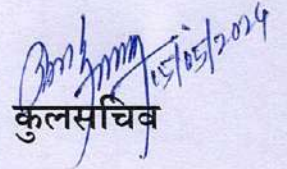 15/05/2024
कुलसचिव